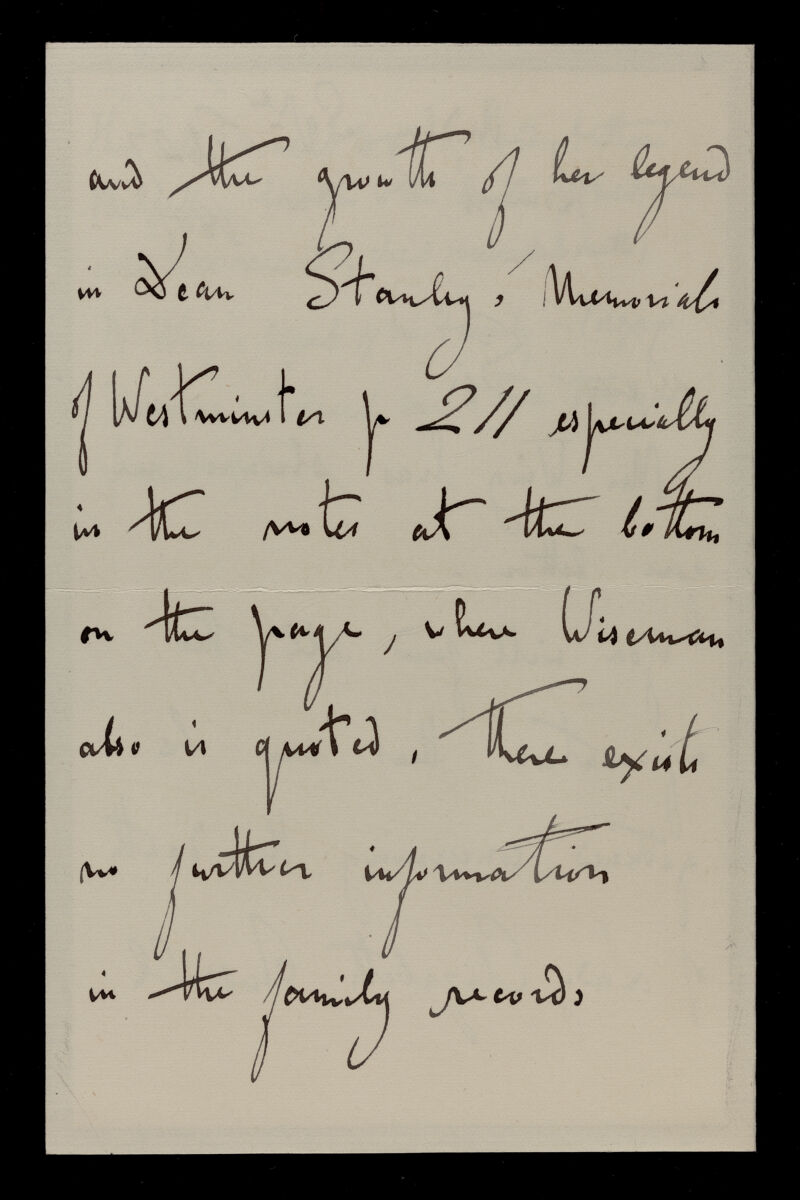 and the growth of her legend
in Dean Stanley's Memorials
of Westminster p 211 especially
in the notes at the bottom
on the page, where Wiseman
also is quoted, There exists
no further information
in the family records